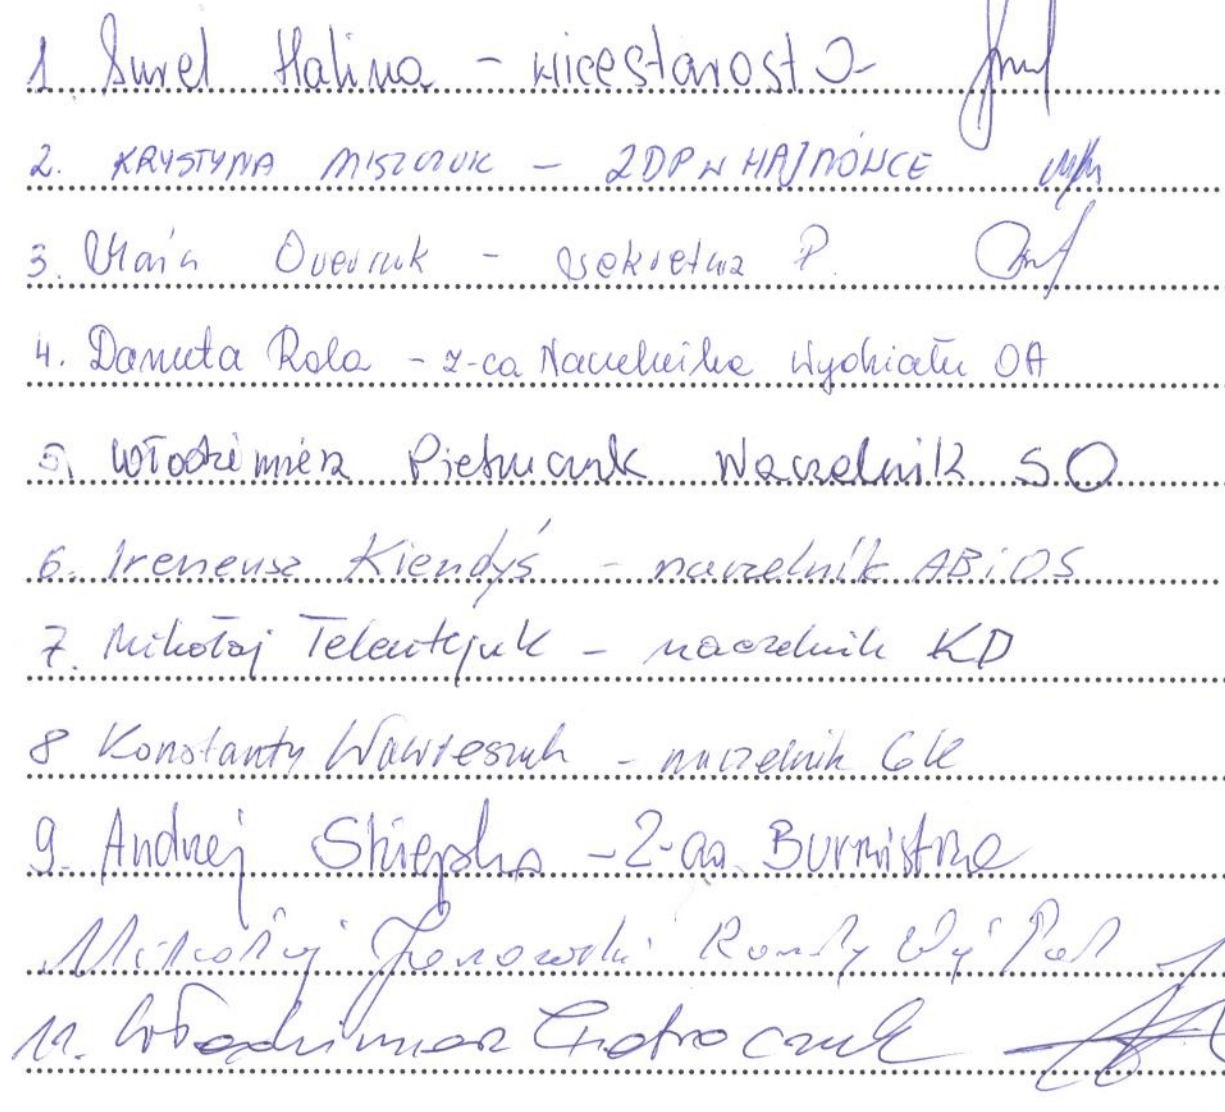 1. Surel Halina - wicestarosta
2. KRYSTYNA MISZCZUK - ZDP W HAJNÓWCE
3. - sekretarz P.
4. Danuta Rola - z-ca Naczelnika Wydziału OA
5. Włodzimierz Pietruczuk Naczelnik SO
6. Ireneusz Kiendyś - naczelnik ABiOS
7. Mikołaj Telentejuk - naczelnik KD
8 Konstanty Wawreszuk - naczelnik GK
9. Andrzej Skiepko - Z-ca Burmistrza
Mikołaj Janowski Radny
11. Włodzimierz Pietroczuk